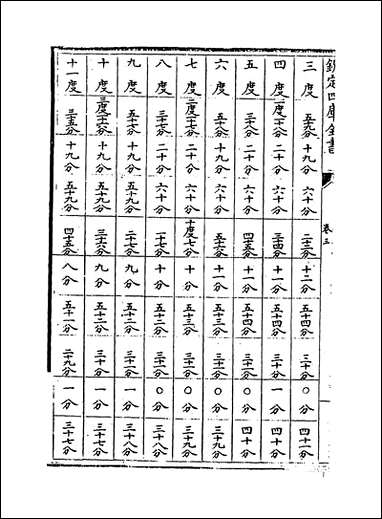 欽定四庫全書
卷三
三度 五十九分 十九分 六十分 二十三分 十二分 五十四分 三十分 〇分 四十一分
四度 一度二十分 二十分 六十分 三十四分 十一分 五十四分 三十分 一分 四十分
五度 三十九分 二十分 六十分 四十五分 十一分 五十四分 三十一分 〇分 四十分
六度 五十九分 十九分 六十分 五十六分 十一分 五十三分 三十一分 〇分 三十九分
七度 二度十七分 二十分 六十分 十度七分 十分 五十三分 三十一分 〇分 三十九分
八度 三十七分 二十分 六十分 十七分 十分 五十二分 三十一分 〇分 三十八分
九度 五十七分 十九分 五十九分 二十七分 九分 五十二分 三十一分 一分 三十八分
十度 三度十六分 十九分 五十九分 三十六分 九分 五十二分 三十分 一分 三十七分
十一度 三十五分 十九分 五十九分 四十五分 八分 五十一分 二十九分 一分 三十七分